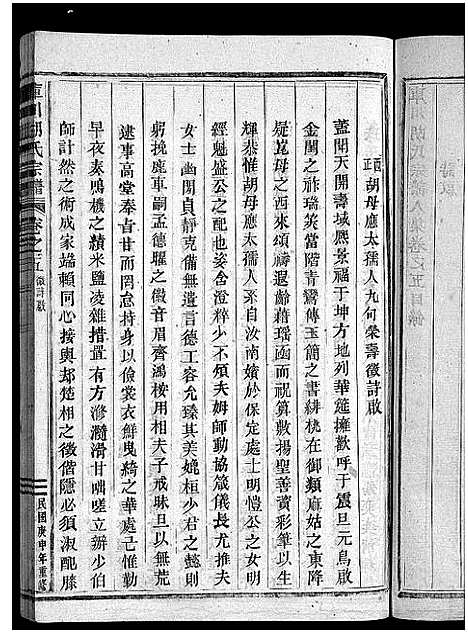 胡母應太孺人九旬榮壽徵詩啟
蓋聞天開壽域熙景福于坤方地列華筵擁歡呼于震旦元鳥啟
金閨之祚瑞英當階青鸞傳玉簡之書緋桃在御類麻姑之東降
疑崑母之西來頌禱遐齡藉瑤函而祝算敷揚聖善資彩筆以明
輝恭惟胡母應太孺人系自汝南嬪於保定處士明愷公之女明
經魁盛公之配也姿含澄粹少不煩夫姆師動協箴儀長尤推夫
女士幽閒貞靜克備無遺言德工容允臻其美媲桓少君之懿則
躬挽鹿車嗣孟德曜之徽音眉齊鴻桉用相夫子戒昧旦以無荒
逮事高堂奉旨甘而罔怠持身以儉裳衣鮮曳綺之華率下以勤
早夜奏鳴機之績米鹽凌雜措置有方滫瀡滑甘咄嗟立辦少伯
師計然之術成家端賴同心接輿却楚相之徵偕隱必須淑配勝
庫川胡氏宗譜
卷之三五
徵詩啟
民國庚申年重修